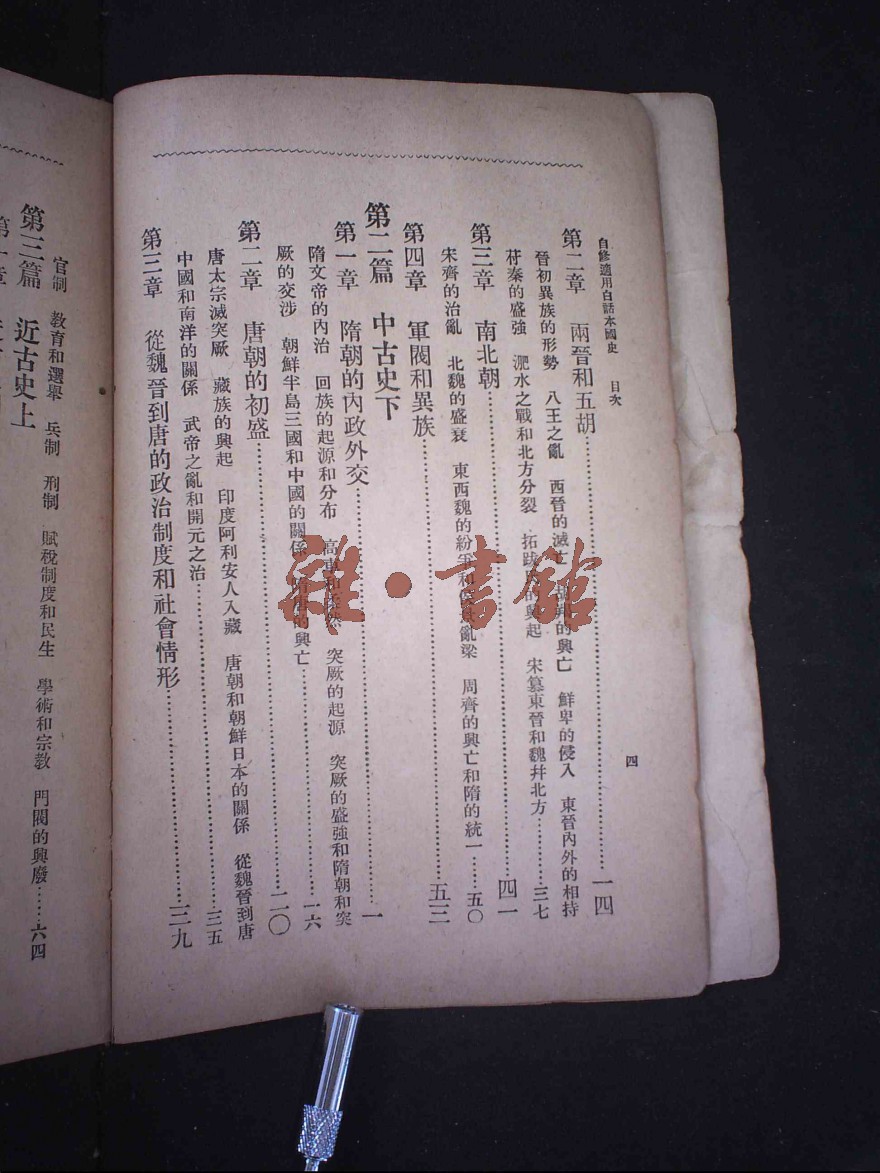 自修適用白話本國史　目次
四
第二章　兩晉和五胡……一四
晉初異族的形勢　八王之亂　西晉的滅亡　的興亡　鮮卑的侵入　東晉內外的相持
苻秦的盛強　淝水之戰和北方分裂　拓跋氏的興起　宋篡東晉和魏并北方……三七
第三章　南北朝……四一
宋齊的治亂　北魏的盛衰　東西魏的紛爭和侯景亂梁　周齊的興亡和隋的統一……五〇
第四章　軍閥和異族……五三
第二篇　中古史下
第一章　隋朝的內政外交……一
隋文帝的內治　回族的起源和分布　高車和柔然　突厥的起源　突厥的盛強和隋朝和突
厥的交涉　朝鮮半島三國和中國的關係　隋唐的興亡……一六
第二章　唐朝的初盛……二〇
唐太宗滅突厥　藏族的興起　印度阿利安人入藏　唐朝和朝鮮日本的關係　從魏晉到唐
中國和南洋的關係　武韋之亂和開元之治……三五
第三章　從魏晉到唐的政治制度和社會情形……三九
官制　教育和選舉　兵制　刑制　賦稅制度和民生　學術和宗教　門閥的興廢……六四
第三篇　近古史上
第一章
雜·書館